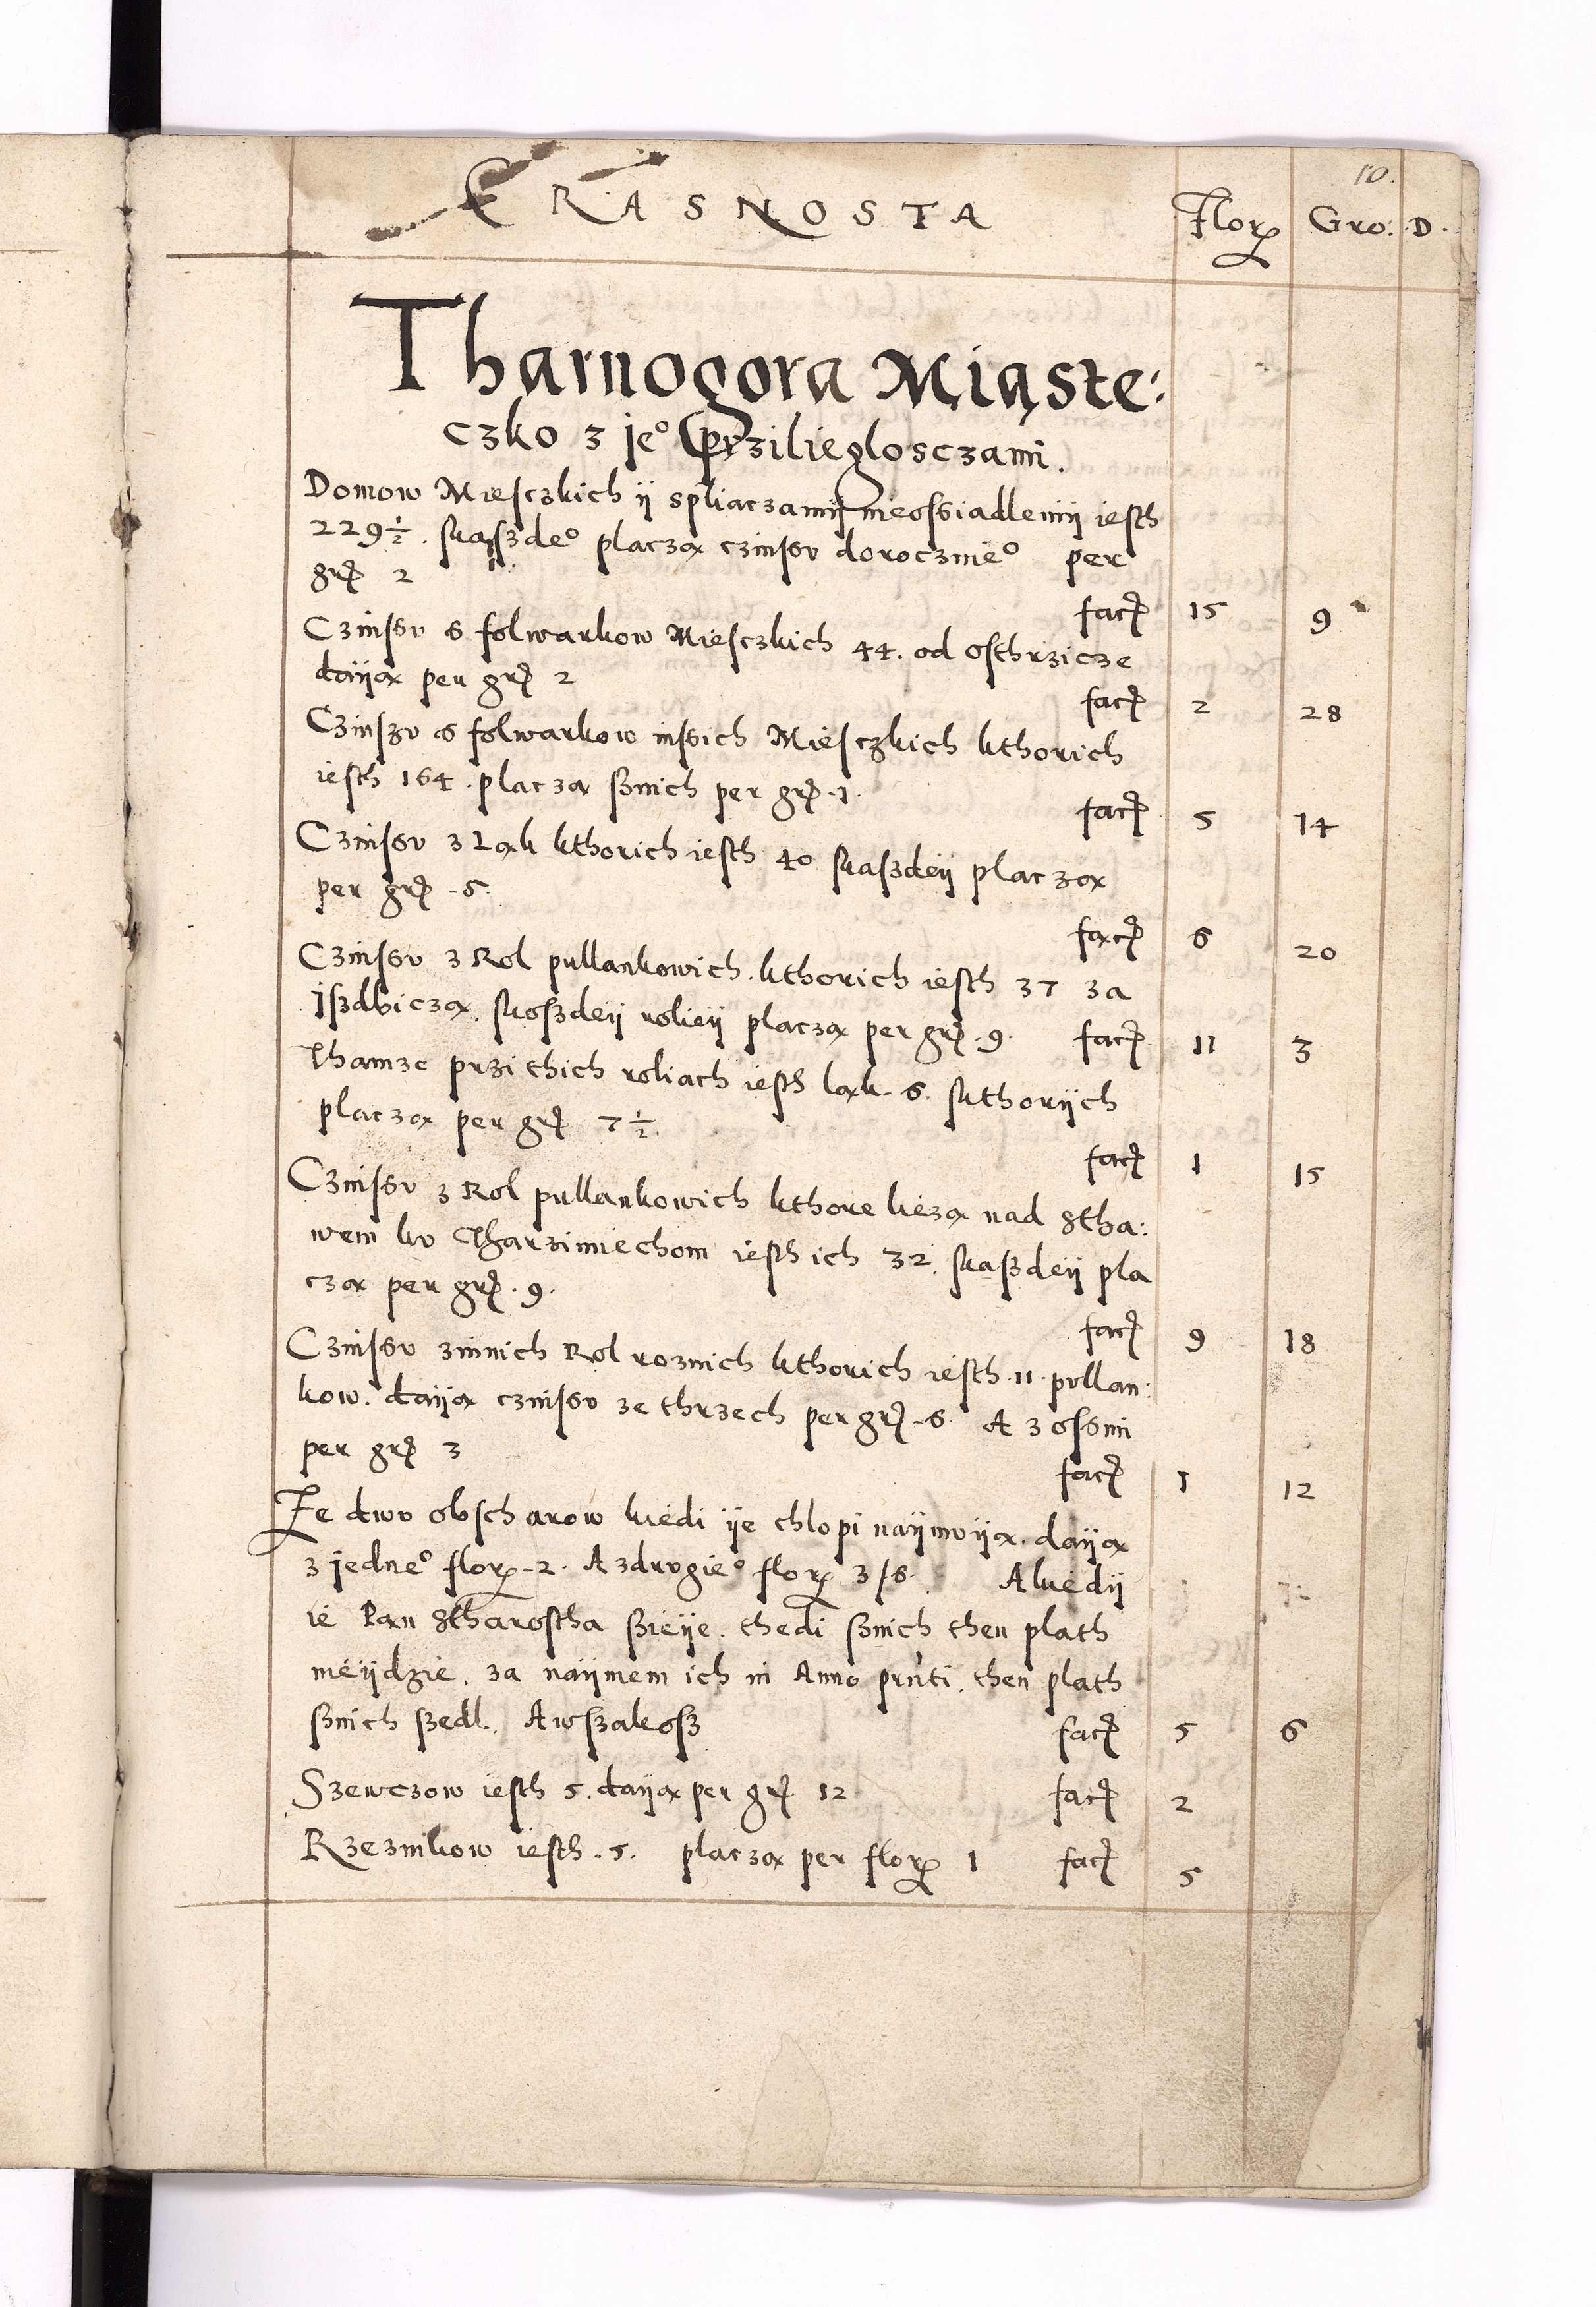 10.
KRASNOSTA Flor Gro: D.
Tharnogora Miąste:
czko z je° Przilieglosczami.
Domow Miesczkich ÿ spliaczamÿ nieossiadlemÿ iesth
229½. skaszde° placzą czinssv dorocznie° per
grz 2 facz 15 9
Czinssv s folwarkow Miesczkich 44. od osthrzicze
daÿą per grz 2 facz 2 28
Czinszv s folwarkow inssich Miesczkich kthorich
iesth 164. placzą sznich per grz 1. facz 5 14
Czinssv z Ląk kthorich iesth 40 skaszdeÿ placzą
per grz 5 facz 6 20
Czinssv z Rol pullankowich kthorich iesth 37 za
Iszdbiczą. skoszdeÿ rolieÿ placzą per grz 9. facz 11 3
Thamze przi thich roliach iesth ląk 6. skthorÿch
placzą per grz 7½. facz 1 15
Czinssv z Rol pullankowich kthore liezą nad Stha:
wem kv Tharzimiechom iesth ich 32. skaszdeÿ pla
czą per grz 9. facz 9 18
Czinssv zinnich Rol roznich kthorich iesth 11 pvllan:
kow. daÿą czinssv ze thrzech per grz 6 A z ossmi
per grz 3 facz 1 12
Ze dwv obscharow kiedi ÿe chlopi naÿmvÿą. daÿą
z jedne° flor 2. A zdrvgie° flor 3/6. A kiedÿ
ie Pan Stharostha szieÿe. thedi sznich then plath
nieÿdzie. za naÿmem ich in Anno prnti. then plath
sznich szedl. Awszakosz facz 5 6
Szewczow iesth 5. daÿą per grz 12 facz 2
Rzeznikow iesth 5. placzą per flor 1 facz 5